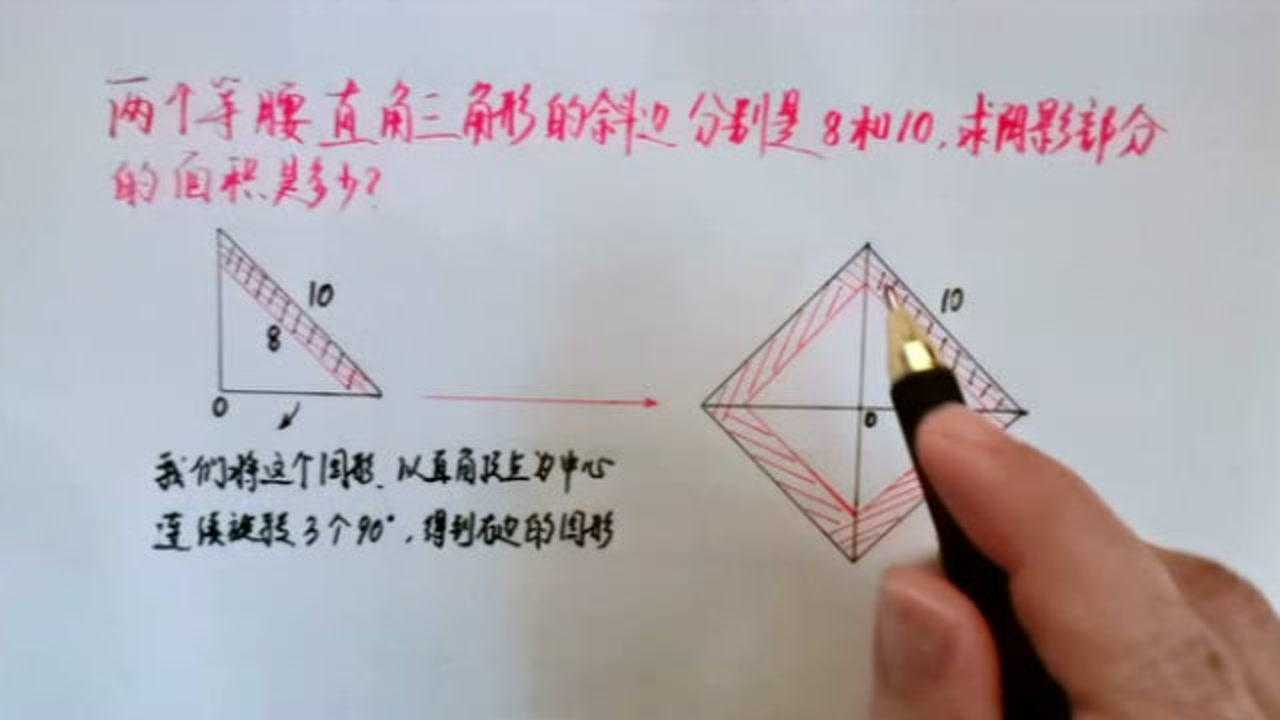 两个等腰直角三角形的斜边分别是8和10,求阴影部分
的面积是多少?
10
8
O
10
O
我们将这个图形,以直角顶点为中心
连续旋转3个90°,得到右边的图形